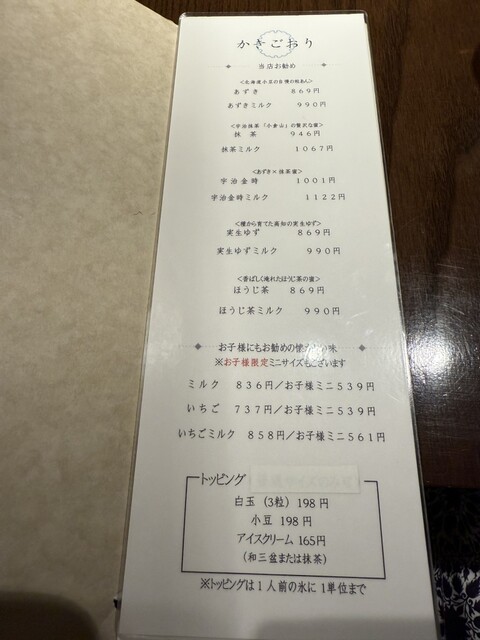 かきごおり
当店お勧め
<北海道小豆の自慢の粒あん>
あずき 869円
あずきミルク 990円
<宇治抹茶「小倉山」の贅沢な蜜>
抹茶 946円
抹茶ミルク 1067円
<あずき×抹茶蜜>
宇治金時 1001円
宇治金時ミルク 1122円
<種から育てた高知の実生ゆず>
実生ゆず 869円
実生ゆずミルク 990円
<香ばしく淹れたほうじ茶の蜜>
ほうじ茶 869円
ほうじ茶ミルク 990円
お子様にもお勧めの の味
※お子様限定ミニサイズもございます
ミルク 836円/お子様ミニ539円
いちご 737円/お子様ミニ539円
いちごミルク 858円/お子様ミニ561円
トッピング
白玉(3粒)198円
小豆 198円
アイスクリーム 165円
(和三盆または抹茶)
※トッピングは1人前の氷に1単位まで